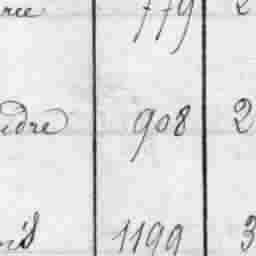 ree 779 2
udre 908 2
ris 1199 3